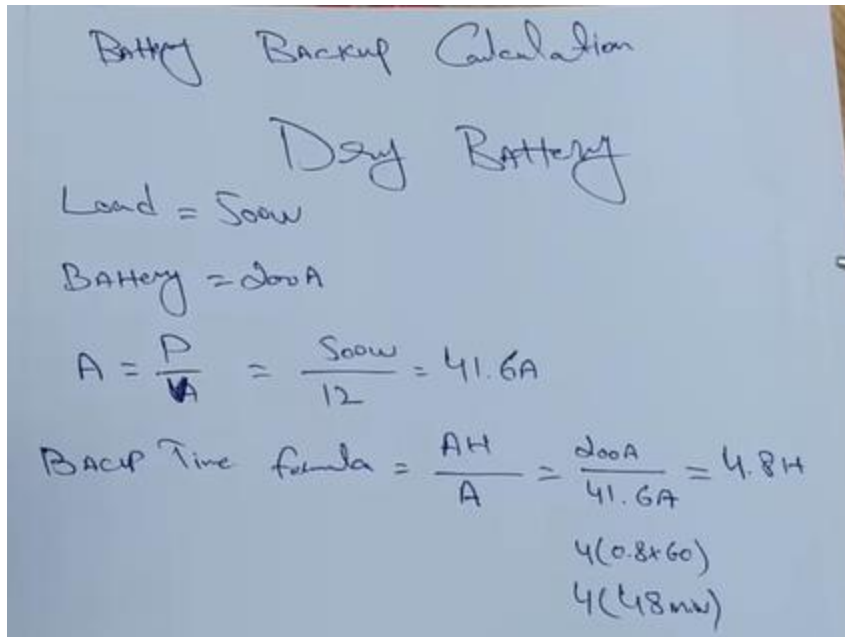 Battery Backup Calculation
Dry Battery
Load = 500w
Battery = 200A
A = P/VA = 500w/12 = 41.6A
BACUP Time formula = AH/A = 200A/41.6A = 4.8H
4(0.8×60)
4(48 min)